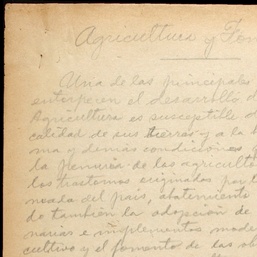 Agricultura y Fom
Una de las principales
entorpecen el desarrollo d
Agricultura es susceptible d
calidad de sus tierras y a la b
ma y demás condiciones q
la penuria de los agricult
los trastornos originados por l
noada del país, abatimiento
do también la adopción de
narias e implementos mode
cultivo y el fomento de las ob